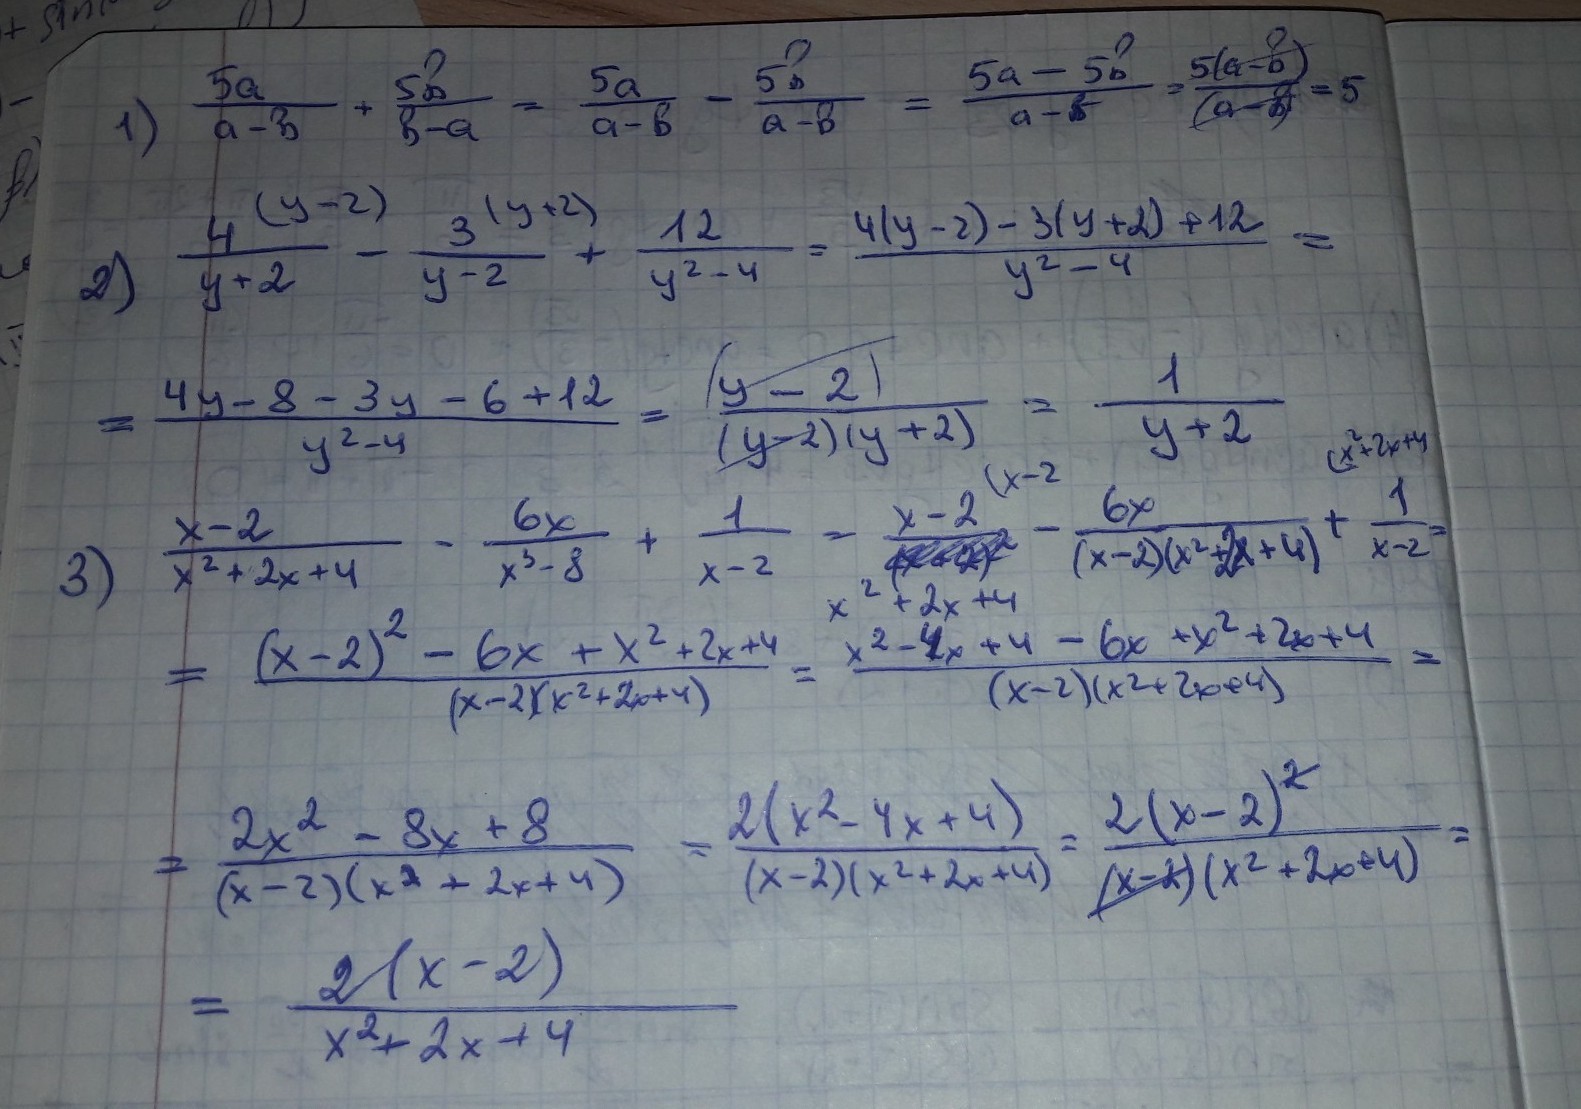 1) 5a/(a-в) + 5в/(в-a) = 5a/(a-в) - 5в/(a-в) = (5a-5в)/(a-в) = 5(a-в)/(a-в) = 5
2) 4^(y-2)/(y+2) - 3^(y+2)/(y-2) + 12/(y²-4) = (4(y-2)-3(y+2)+12)/(y²-4) =
= (4y-8-3y-6+12)/(y²-4) = (y-2)/((y-2)(y+2)) = 1/(y+2)
3) (x-2)/(x²+2x+4) - 6x/(x³-8) + 1/(x-2) = (x-2)^(x-2/(x²+2x+4) - 6x/((x-2)(x²+2x+4)) + 1^(x²+2x+4/(x-2) =
= ((x-2)²-6x+x²+2x+4)/((x-2)(x²+2x+4)) = (x²-4x+4-6x+x²+2x+4)/((x-2)(x²+2x+4)) =
= (2x²-8x+8)/((x-2)(x²+2x+4)) = 2(x²-4x+4)/((x-2)(x²+2x+4)) = 2(x-2)²/((x-2)(x²+2x+4)) =
= 2(x-2)/(x²+2x+4)